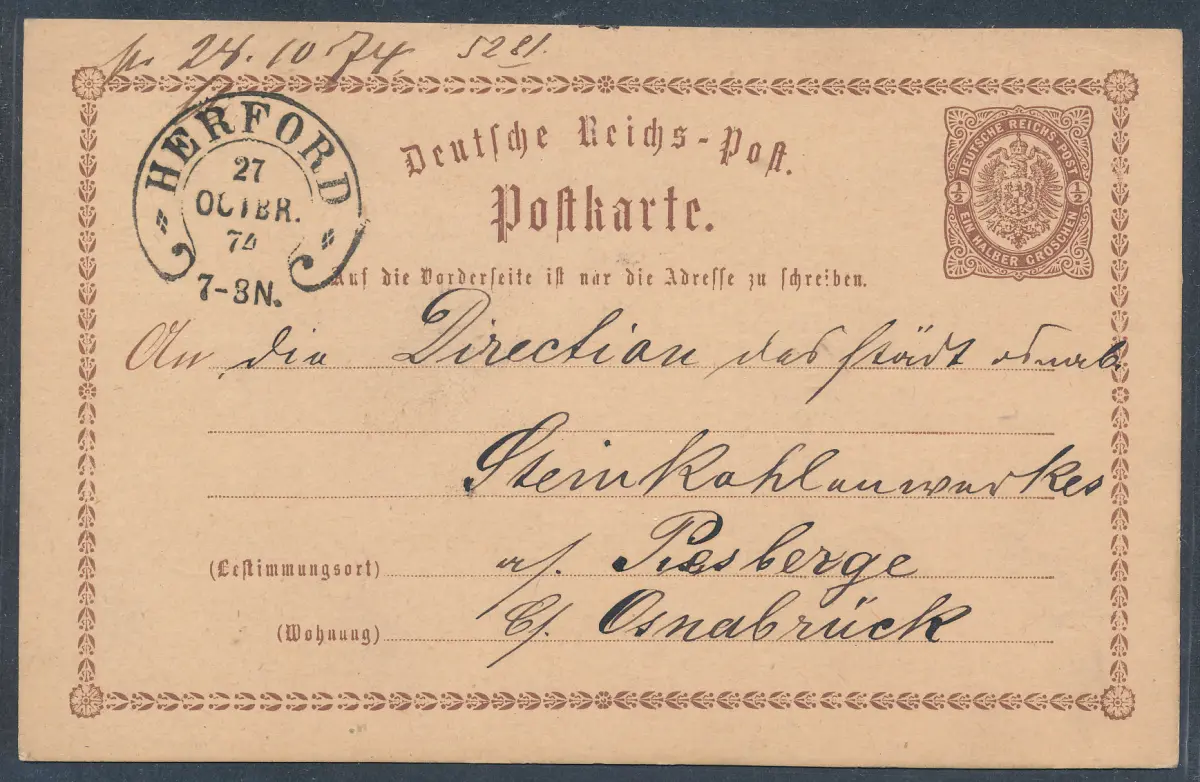 pr 28.10 74 5281.
HERFORD
27
OCTBR.
74
7-8N.
Deutsche Reichs-Post.
Postkarte.
DEUTSCHE REICHS-POST
½ ½
EIN HALBER GROSCHEN
Auf die Vorderseite ist nur die Adresse zu schreiben.
An die Direction des städt osnab.
Steinkohlenwerkes
a/. Piesberge
(Bestimmungsort)
b/. Osnabrück
(Wohnung)